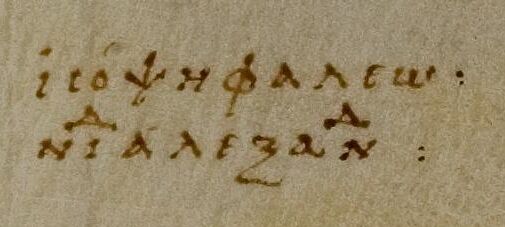 ἰσόψηφα λεω :
νιΔ ἀλεξανΔ :